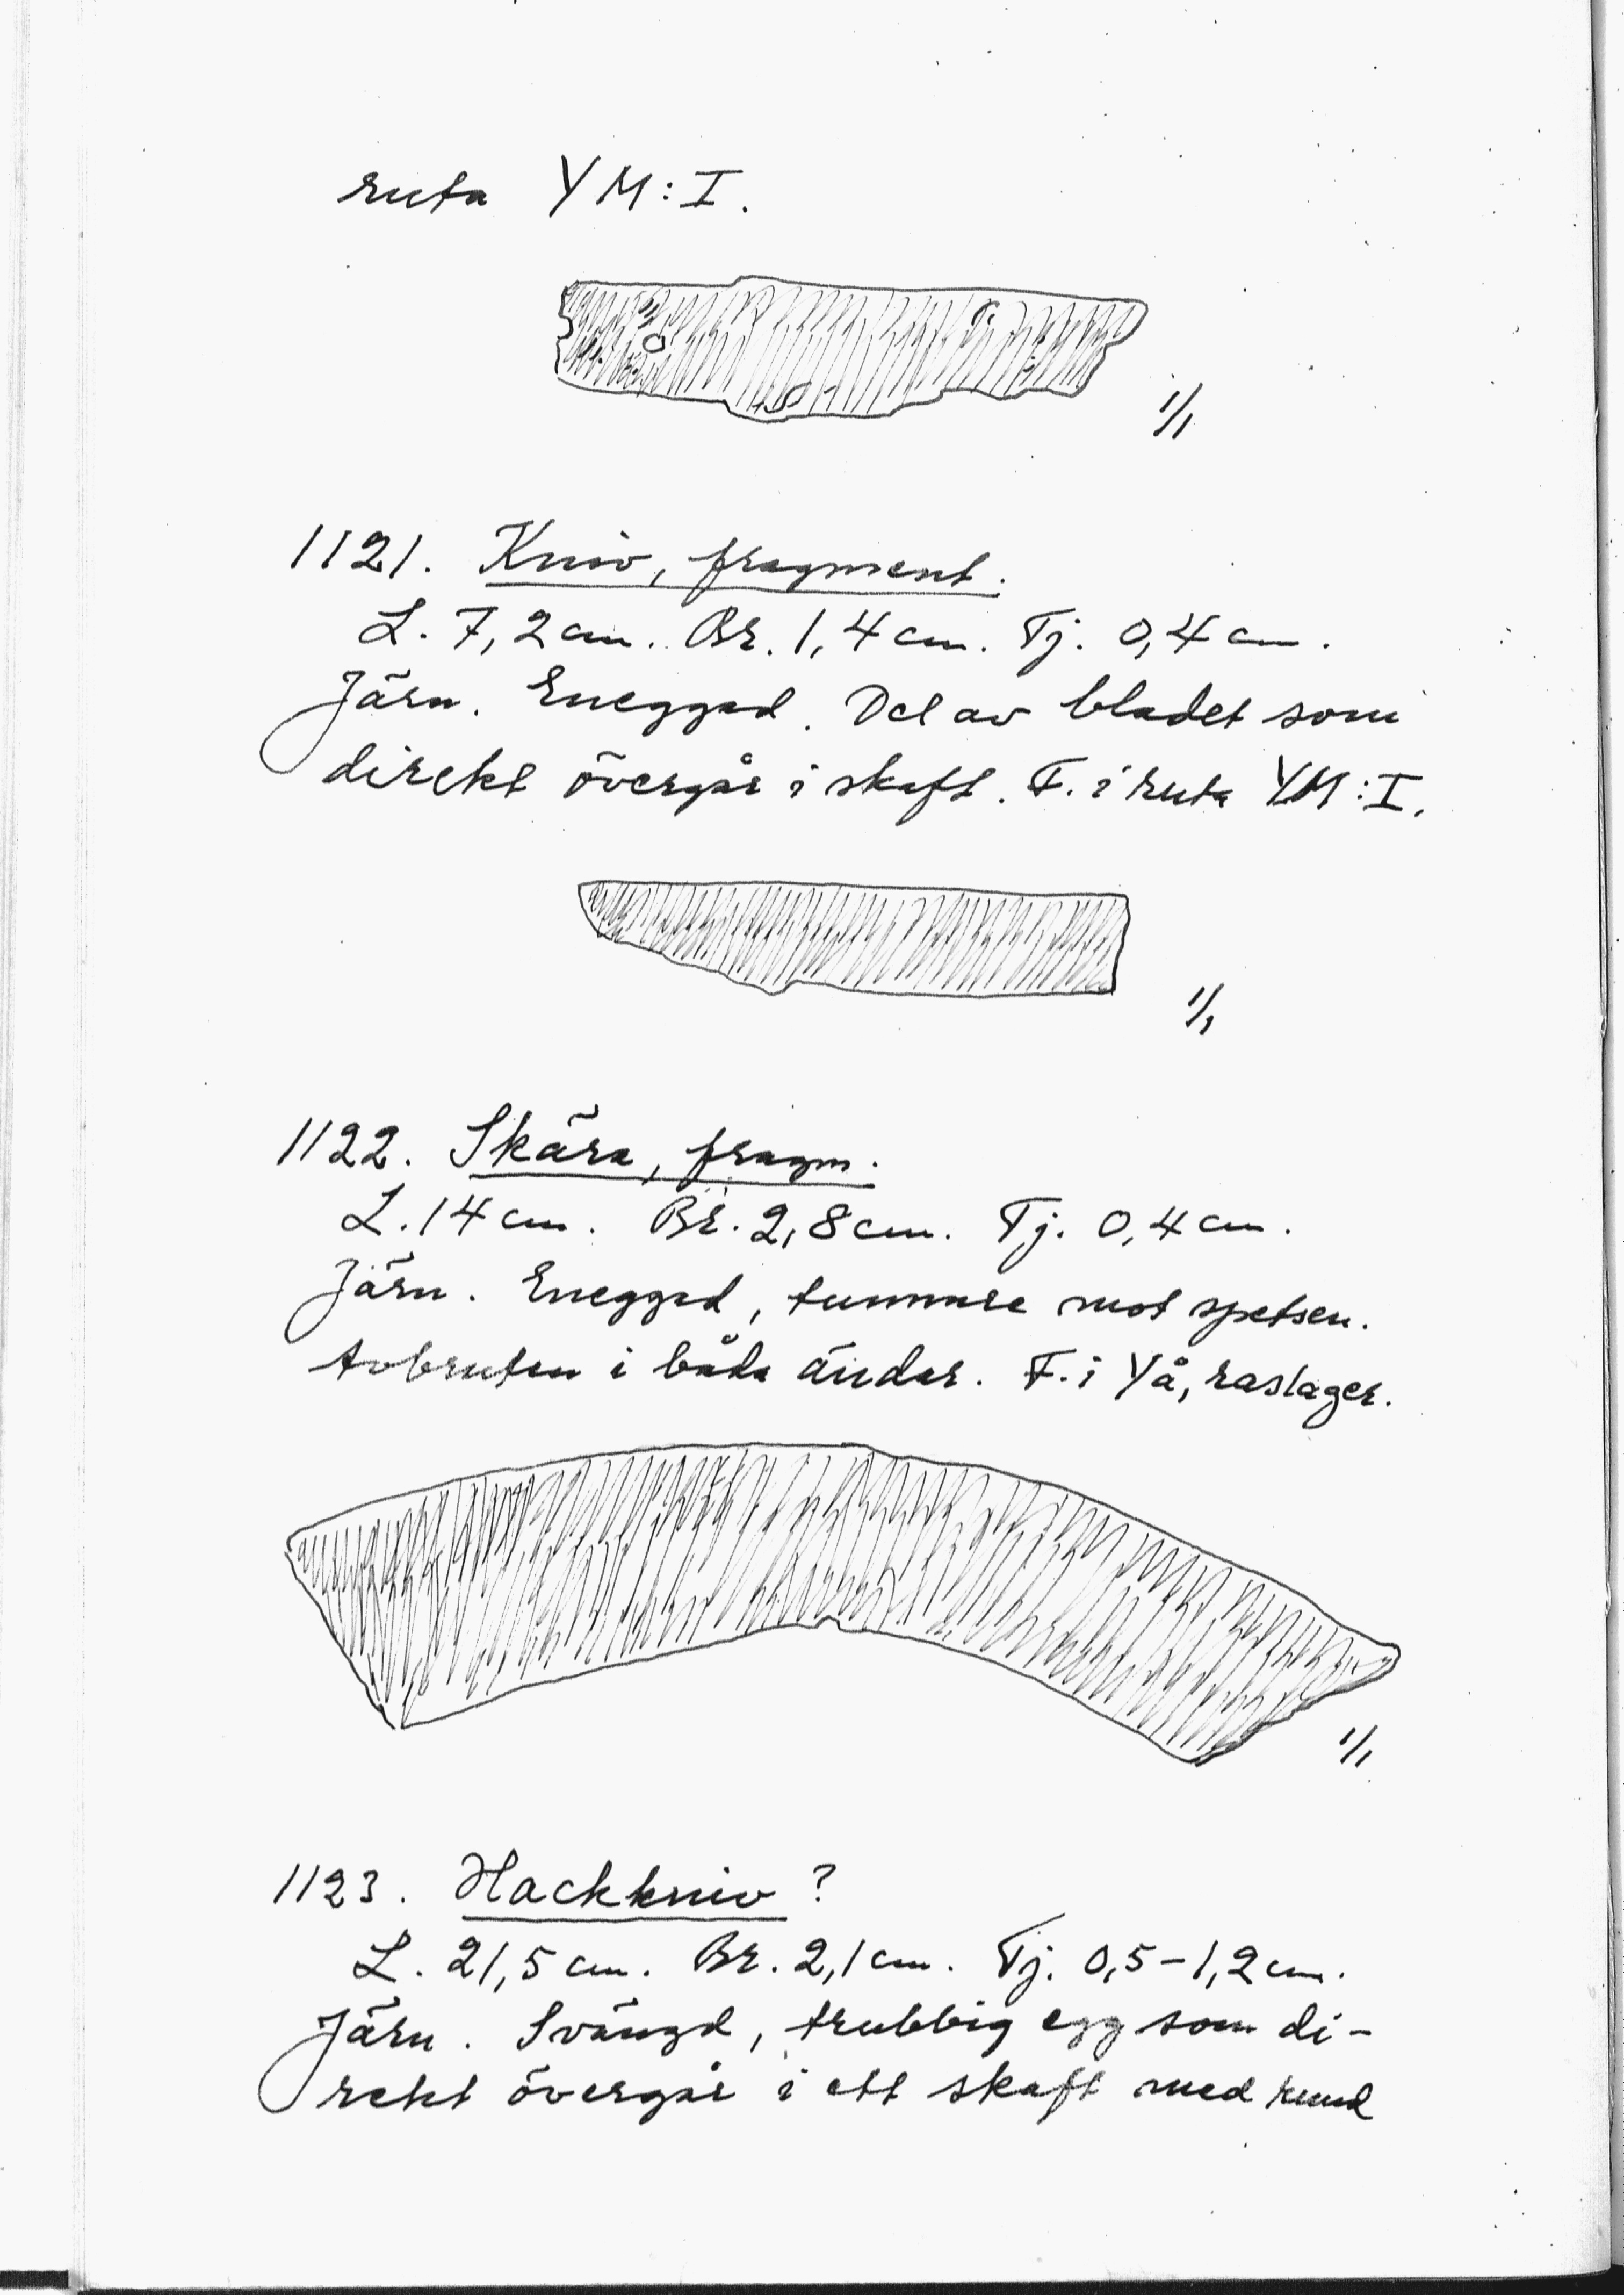 ruta YM:I.
1/1
1121. Kniv, fragment.
L. 7,2 cm. Br. 1,4 cm. Tj. 0,4 cm.
Järn. Eneggad. Del av bladet som
direkt övergår i skaft. F. i ruta YM:I.
1/1
1122. Skära, fragm.
L. 14 cm. Br. 2,8 cm. Tj. 0,4 cm.
Järn. Eneggad, tunnare mot spetsen.
Avbruten i båda ändar. F. i Yå, raslager.
1/1
1123. Hackkniv?
L. 21,5 cm. Br. 2,1 cm. Tj. 0,5-1,2 cm.
Järn. Svängd, trubbig egg som di-
rekt övergår i ett skaft med rund